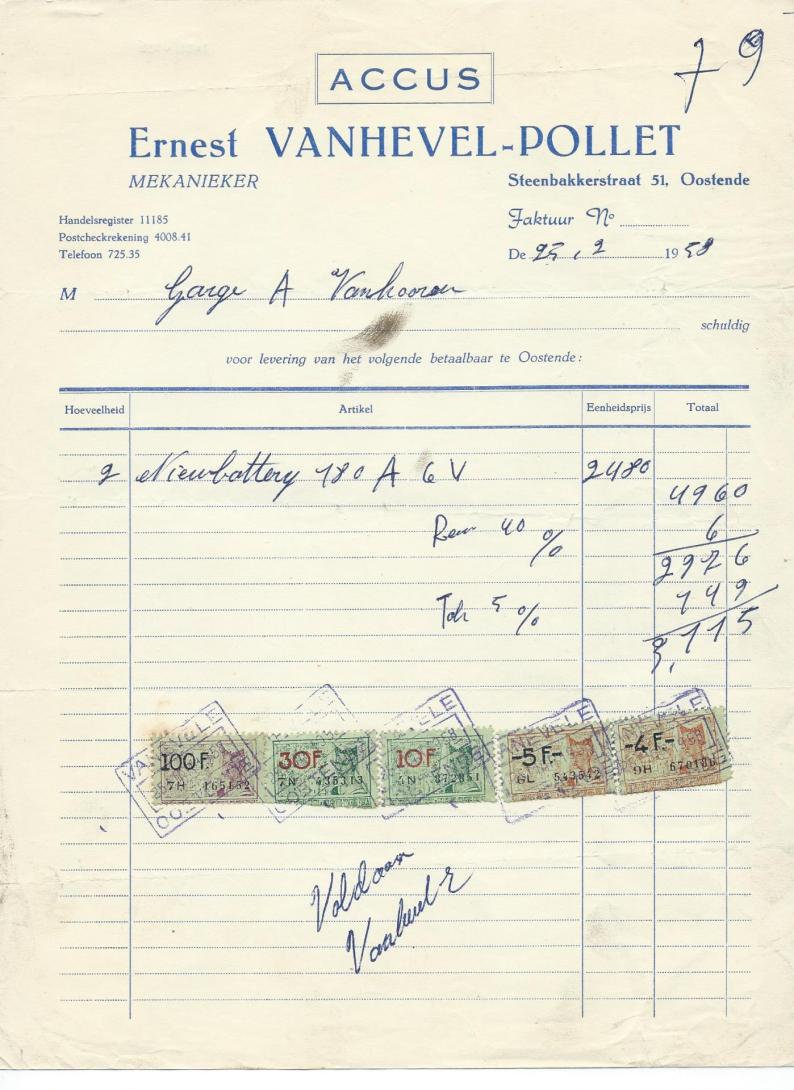 7 9
ACCUS
Ernest VANHEVEL-POLLET
MEKANIEKER
Steenbakkerstraat 51, Oostende
Handelsregister 11185
Postcheckrekening 4008.41
Telefoon 725.35
Faktuur No
De 25, 2 1958
M Garge A Vankooren
schuldig
voor levering van het volgende betaalbaar te Oostende:
Hoeveelheid Artikel Eenheidsprijs Totaal
2 Nieuwbattery 180 A 6 V 2480
4960
Rem 40 % 6
2976
149
5 %
3,115
100 F. 30 F 10 F -5 F.- -4 F.-
7H 165152 7N 435313 5N 872851 6L 543542 9H
Voldaan